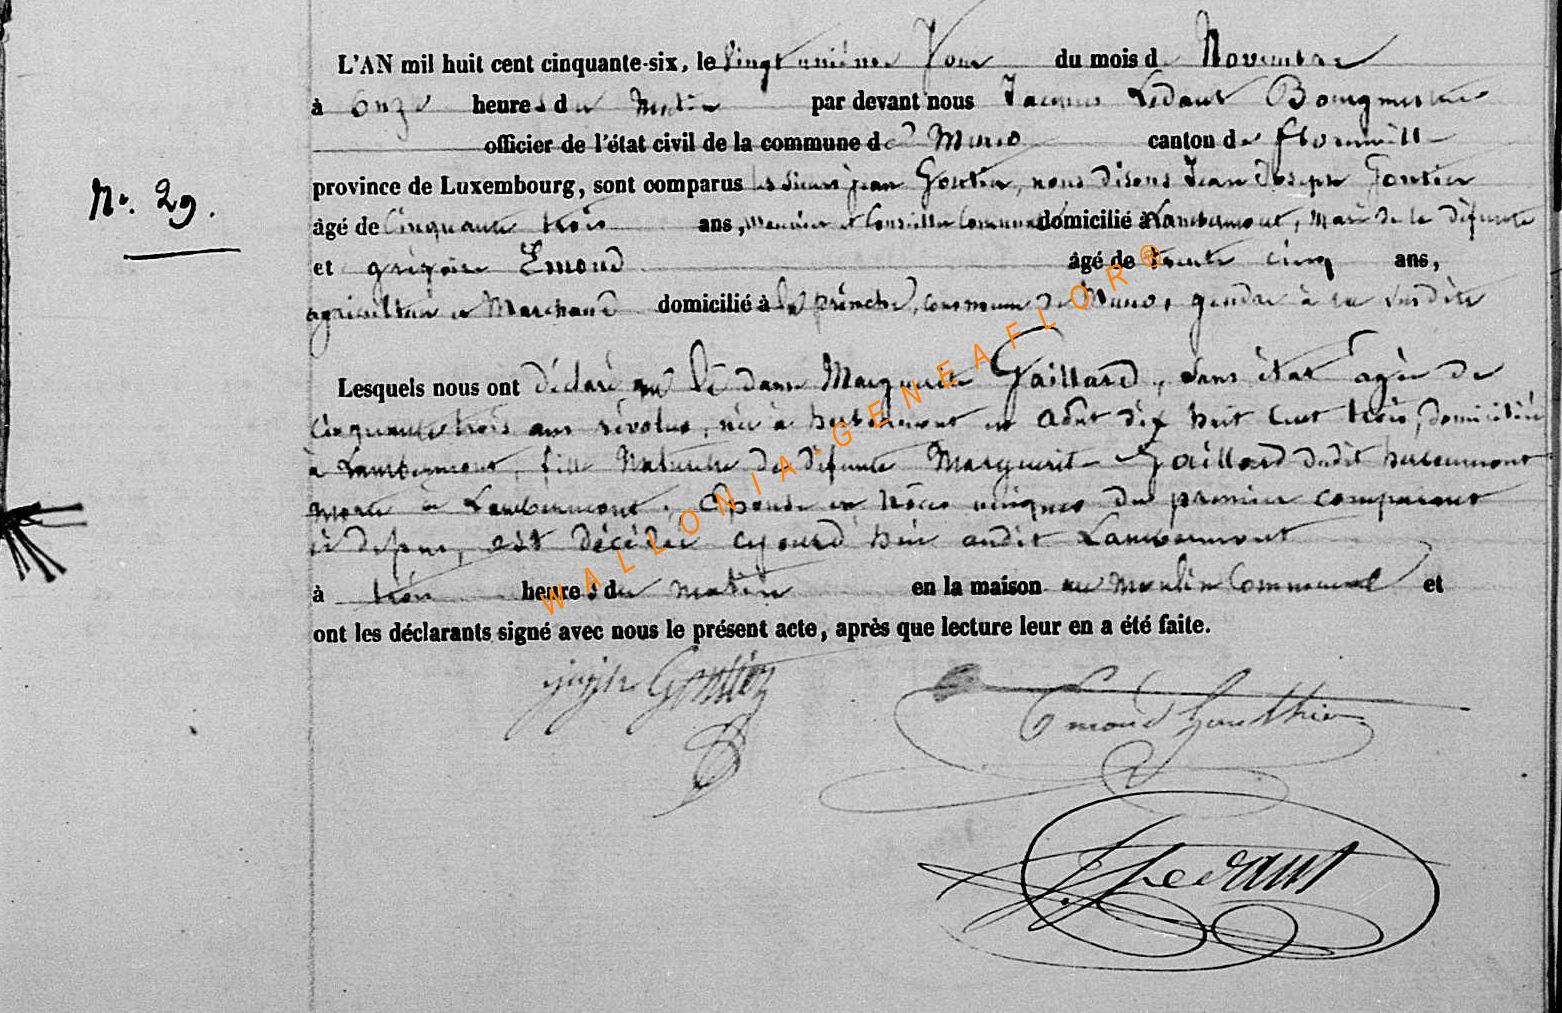 L'AN mil huit cent cinquante-six, le Vingt unième Jour du mois de Novembre
à onze heures du Matin par devant nous Jacques Ledant Bourgmestre
officier de l'état civil de la commune de Muno canton de florenvill
N°. 29.
province de Luxembourg, sont comparus les sieurs jean Goutier, nous disons Jean Joseph Goutier
âgé de Cinquante trois ans, Meunier et Conseiller Communal domicilié à Lambermont, Mari de la défunte
et grégoire Emond âgé de trente cinq ans,
agriculteur et Marchand domicilié à commune de Muno, gendre à la susdite
Lesquels nous ont déclaré que la dame Marguerite Gaillard, sans état agée de
Cinquante trois ans révolus, née à herbeumont en Août dix huit cent trois, domiciliée
à Lambermont, fille Naturelle de défunte Marguerite Gaillard dudit herbeumont
morte à Lambermont. Epouse en nôces uniques du premier comparant
ci dessus, est décédée cejourd'hui audit Lambermont
à trois heures du matin en la maison au Moulin Communal et
ont les déclarants signé avec nous le présent acte, après que lecture leur en a été faite.
Emond Gauthier
Ledant
WALLONIA-GENEAFLOR®